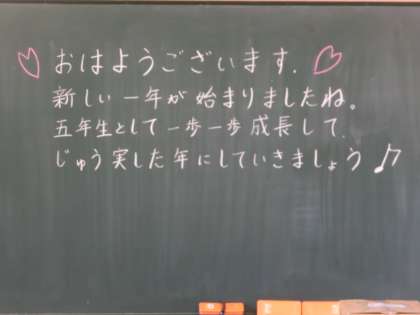 おはようございます.
新しい一年が始まりましたね。
五年生として一歩一歩成長して、
じゅう実した年にしていきましょう♪